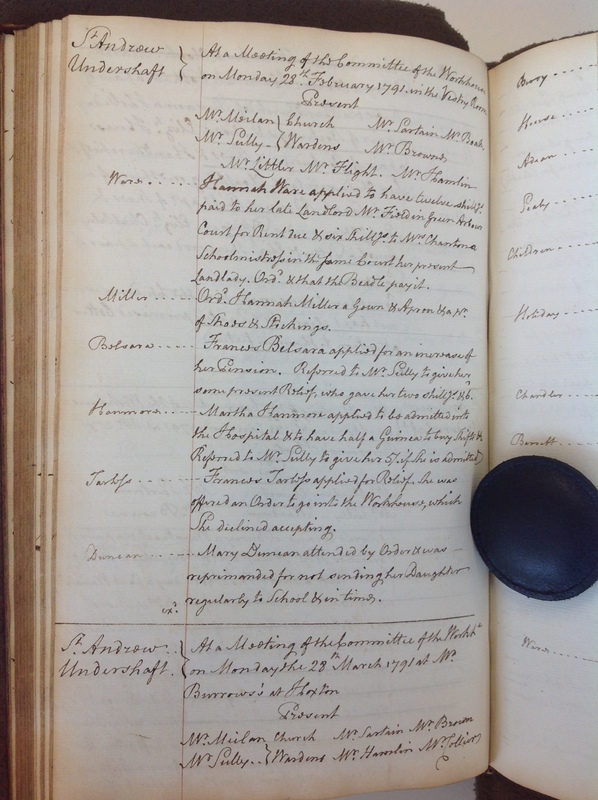 St. Andrew
Undershaft
At a Meeting of the Committee of the Workhouse
on Monday 28th. February 1791 in the Vestry Room
Present
Mr. Meilan Church Mr. Sartain Mr.
Mr. Sully Wardens Mr. Browne
Mr. Littler Mr. Flight. Mr. Hamlin
Ware Hannah Ware applied to have twelve shillgs.
paid to her late Landlord Mr. Field in Green Arbour
Court for Rent due & six Shillgs. to Mrs.
Schoolmistress in the same Court her present
Landlady. Ord. & that the Beadle pay it.
Miller Ord. Hannah Miller a Gown & Apron & a pr.
of Shoes & Stockings.
Belsara Frances Belsara applied for an increase of
her Pension. Referred to Mr. Sully to give her
some present Relief, who gave her two shillgs. & 6.
Hanmore Martha Hanmore applied to be admitted into
the Hospital & to have half a Guinea to buy Shifts &c
Referred to Mr. Sully to give her 5/. if she is admitted
Frances applied for Relief. She was
offered an Order to go into the Workhouse, which
She declined accepting.
Duncan Mary Duncan attended by Order & was
reprimanded for not sending her Daughter
regularly to School & in time.
exd.
St. Andrew
Undershaft.
At a Meeting of the Committee of the Workhe.
on Monday the 28th March 1791 at Mr.
Burrows's at Hoxton
Present
Mr. Meilan Church Mr. Sartain Mr. Brown
Mr. Sully Wardens Mr. Hamlin Mr.
House
Adean
Children
Holiday
Chandler
Ware